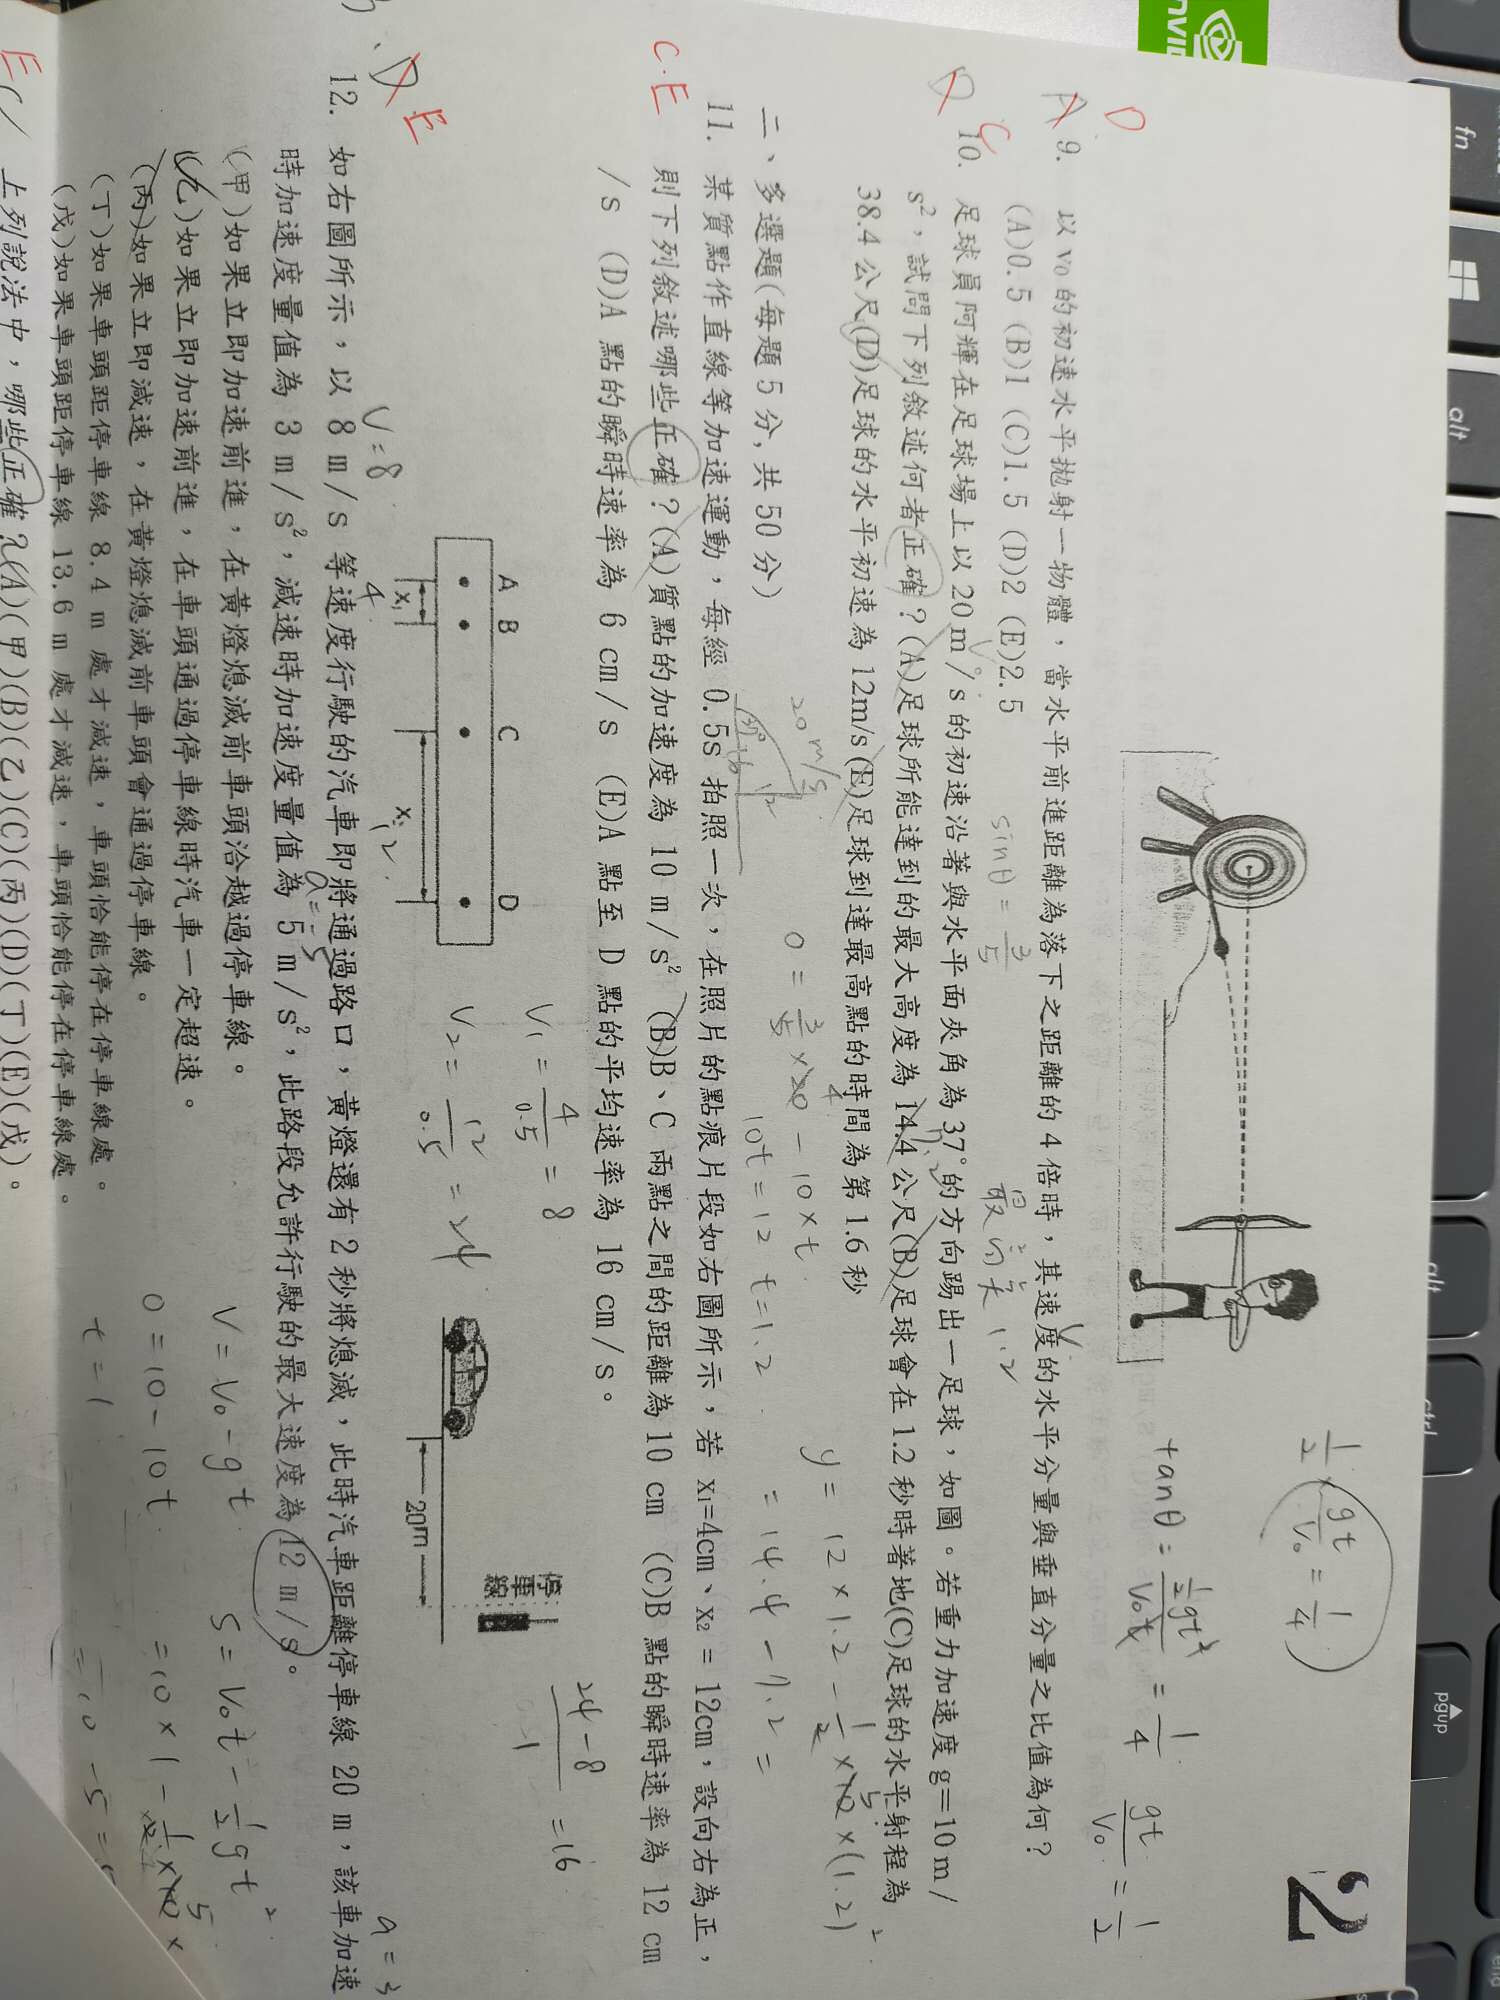 2
1/2 × gt/v₀ = 1/4
tanθ = ½gt²/v₀t = 1/4
gt/v₀ = 1/2
D
A 9. 以 v₀的初速水平拋射一物體，當水平前進距離為落下之距離的 4 倍時，其速度的水平分量與垂直分量之比值為何？
(A)0.5 (B)1 (C)1.5 (D)2 (E)2.5
sinθ = 3/5
1.2
C
D 10. 足球員阿輝在足球場上以 20 m／s 的初速沿著與水平面夾角為 37°的方向踢出一足球，如圖。若重力加速度 g＝10 m／
s²，試問下列敘述何者正確？(A)足球所能達到的最大高度為 14.4 公尺(B)足球會在 1.2 秒時著地(C)足球的水平射程為
38.4 公尺(D)足球的水平初速為 12m/s(E)足球到達最高點的時間為第 1.6 秒
7.2
20 m/s
37°
16
12
0 = 3/5 × 20 - 10 × t
10t = 12 t = 1.2
y = 12 × 1.2 - 1/2 × 10 × (1.2)²
= 14.4 - 7.2 =
二、多選題(每題 5 分, 共 50 分)
11. 某質點作直線等加速運動，每經 0.5s 拍照一次，在照片的點痕片段如右圖所示，若 x₁=4cm、x₂ = 12cm，設向右為正，
C.E
則下列敘述哪些正確？(A)質點的加速度為 10 m／s² (B)B、C 兩點之間的距離為 10 cm (C)B 點的瞬時速率為 12 cm
／s (D)A 點的瞬時速率為 6 cm／s (E)A 點至 D 點的平均速率為 16 cm／s。
A B C D
x₁
x₂
4
12
V₁ = 4/0.5 = 8
V₂ = 12/0.5 = 24
24-8/1 = 16
停車線
20m
V = 8
a = 3
D E
12. 如右圖所示，以 8 m／s 等速度行駛的汽車即將通過路口，黃燈還有 2 秒將熄滅，此時汽車距離停車線 20 m，該車加速
時加速度量值為 3 m／s²，減速時加速度量值為 5 m／s²，此路段允許行駛的最大速度為 12 m／s。
a = -5
(甲)如果立即加速前進，在黃燈熄滅前車頭洽越過停車線。
(乙)如果立即加速前進，在車頭通過停車線時汽車一定超速。
(丙)如果立即減速，在黃燈熄滅前車頭會通過停車線。
(丁)如果車頭距停車線 8.4 m 處才減速，車頭恰能停在停車線處。
(戊)如果車頭距停車線 13.6 m 處才減速，車頭恰能停在停車線處。
E
上列說法中，哪些正確？(A)(甲)(B)(乙)(C)(丙)(D)(丁)(E)(戊)。
V = V₀ - gt
0 = 10 - 10t
t = 1
S = V₀t - ½gt²
= 10 × 1 - ½ × 10 ×
= 10 - 5 =
fn
alt
alt
ctrl
pgup